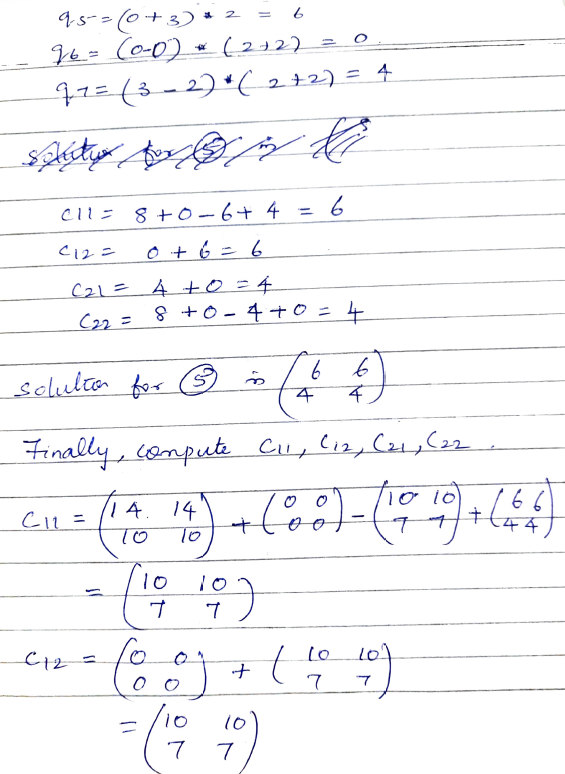 q5 = (0+3) * 2 = 6
q6 = (0-0) * (2+2) = 0
q7 = (3-2) * (2+2) = 4
solution for ⑤ is
C11 = 8+0-6+4 = 6
C12 = 0+6 = 6
C21 = 4+0 = 4
C22 = 8+0-4+0 = 4
solution for ⑤ is (6 6
4 4)
Finally, compute C11, C12, C21, C22.
C11 = (14. 14
10 10) + (0 0
0 0) - (10 10
7 7) + (6 6
4 4)
= (10 10
7 7)
C12 = (0 0
0 0) + (10 10
7 7)
= (10 10
7 7)